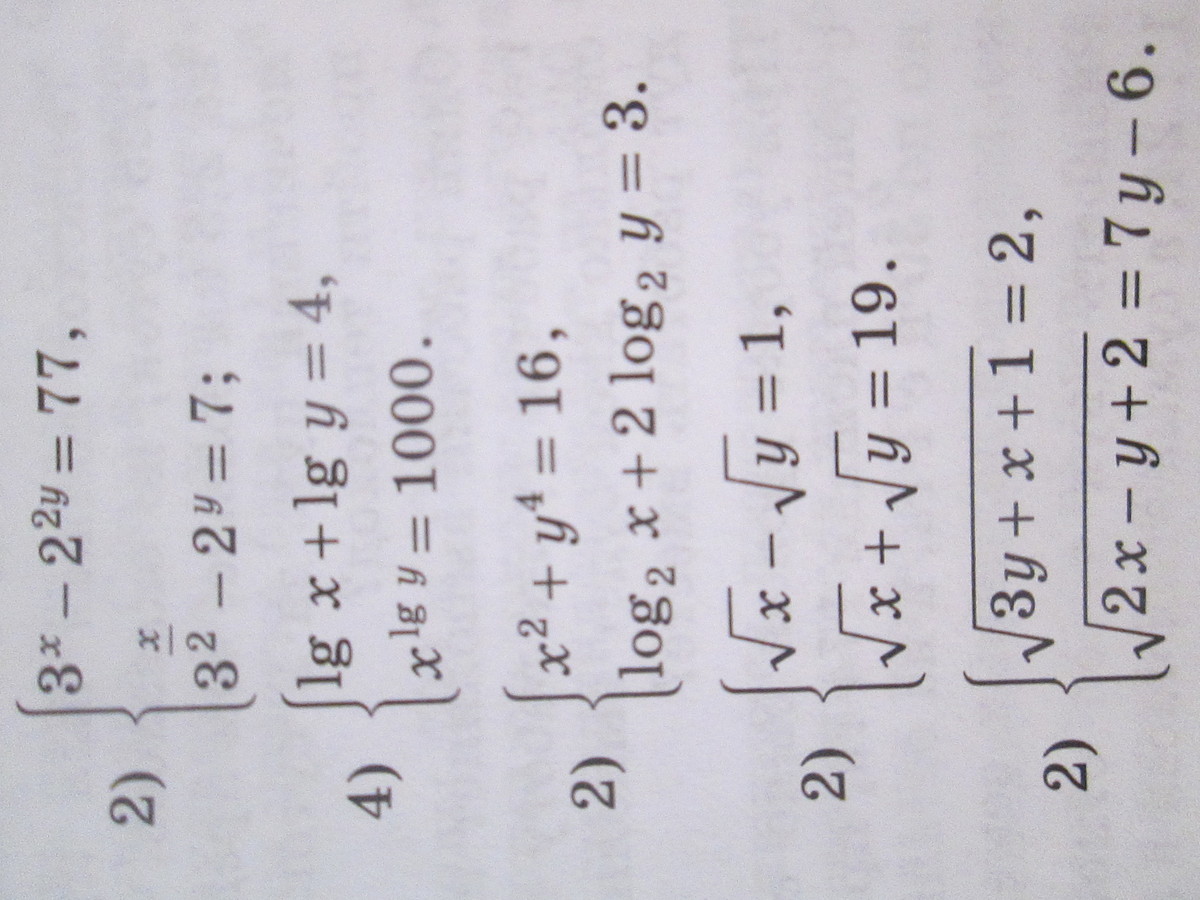 2) { 3^x − 2^{2y} = 77,
3^{x/2} − 2^y = 7;
4) { lg x + lg y = 4,
x^{lg y} = 1000.
2) { x² + y⁴ = 16,
log₂ x + 2 log₂ y = 3.
2) { √x − √y = 1,
√x + √y = 19.
2) { √(3y + x + 1) = 2,
√(2x − y + 2) = 7y − 6.